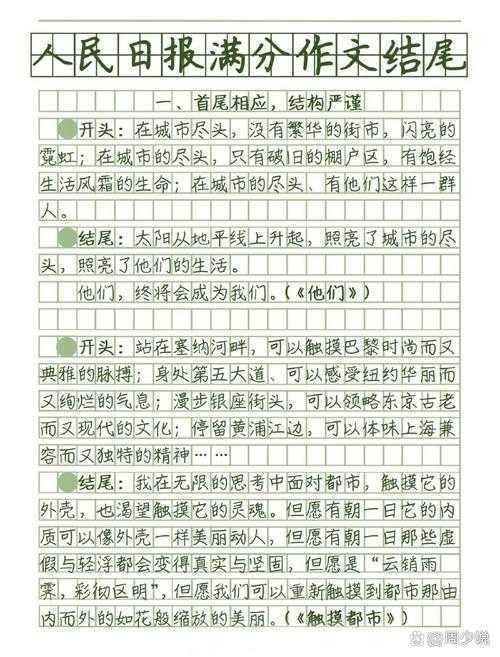 人民日报满分作文结尾
一、首尾相应，结构严谨
开头：在城市尽头，没有繁华的街市，闪亮的
霓虹；在城市的尽头，只有破旧的棚户区，有饱经
生活风霜的生命；在城市的尽头、有他们这样一群
人。
结尾：太阳从地平线上升起，照亮了城市的尽
头，照亮了他们的生活。
他们，终将会成为我们。（《他们》）
开头：站在塞纳河畔，可以触摸巴黎时尚而又
典雅的脉搏；身处第五大道、可以感受纽约华丽而
又绚烂的气息；漫步银座街头，可以领略东京古老
而又现代的文化；停留黄浦江边，可以体味上海兼
容而又独特的精神……
结尾：我在无限的思考中面对都市，触摸它的
外壳，也渴望触摸它的灵魂。但愿有朝一日它的内
质可以像外壳一样美丽动人，但愿有朝一日那些虚
假与轻浮都会变得真实与坚固，但愿是“云销雨
霁，彩彻区明”，但愿我们可以重新触摸到都市那由
内而外的如花般缩放的美丽。（《触摸都市》）
周少说